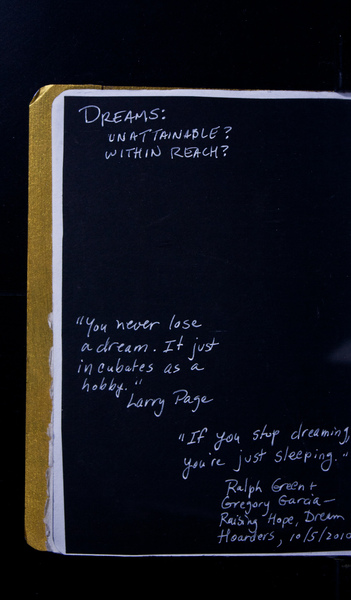 DREAMS:
UNATTAINABLE?
WITHIN REACH?
"You never lose
a dream. It just
incubates as a
hobby."
Larry Page
"If you stop dreaming,
you're just sleeping."
Ralph Green +
Gregory Garcia –
Raising Hope, Dream
Hoarders, 10/5/2010